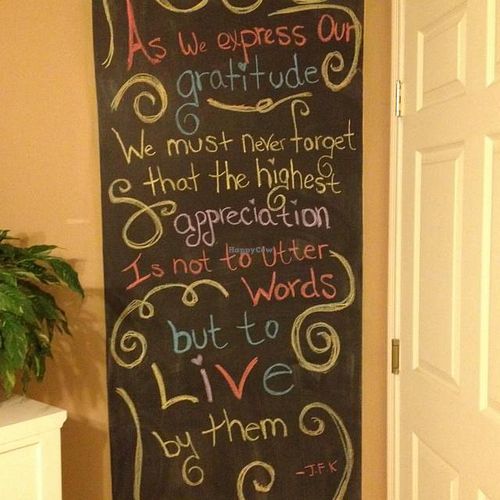 As We express Our
gratitude
We must never forget
that the highest
appreciation
HappyCow
Is not to utter
Words
but to
LiVe
by them
-J.F K